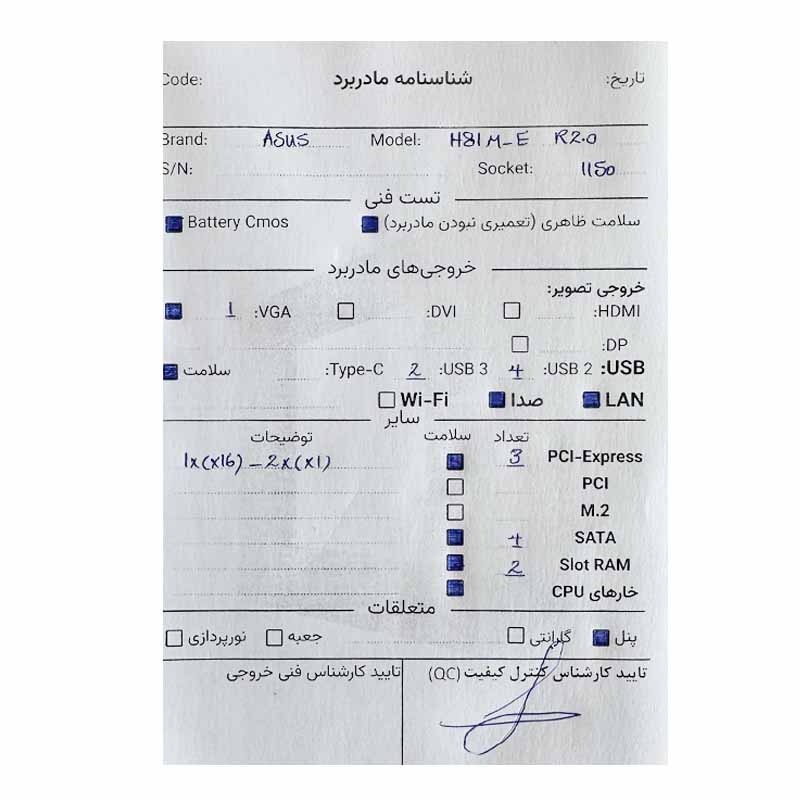 تاریخ: شناسنامه مادربرد Code:
Brand: ASUS Model: H81M-E R2.0
S/N: Socket: 1150
تست فنی
سلامت ظاهری (تعمیری نبودن مادربرد) Battery Cmos
خروجی‌های مادربرد
خروجی تصویر:
HDMI: DVI: VGA: 1
DP:
USB: USB 2: 4 USB 3: 2 Type-C: سلامت
LAN صدا Wi-Fi
سایر
تعداد سلامت توضیحات
PCI-Express 3 1x(x16) - 2x(x1)
PCI
M.2
SATA 4
Slot RAM 2
خارهای CPU
متعلقات
پنل گارانتی جعبه نورپردازی
تایید کارشناس کنترل کیفیت (QC) تایید کارشناس فنی خروجی